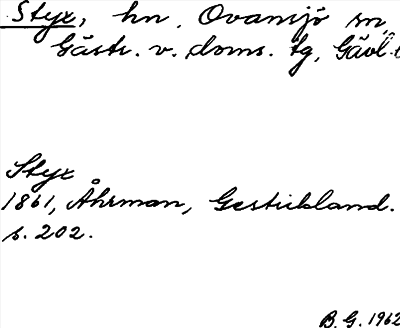 Styx, hn. Ovansjö sn,
Gästr. v. doms. tg, Gävl. l
Styx
1861, Åhrman, Gestrikland.
s. 202.
B. G. 1962